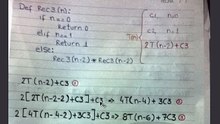 Def Rec3(n):
if n==0
return 0
elif n==1
Return 1
else:
Rec3(n-2)*Rec3(n-2)
T(n)
c1, n=0
c2, n=1
2T(n-2)+C3
2T(n-2)+C3 ①
2[2T(n-2-2)+C3]+C3 → 4T(n-4)+3C3 ②
4[2T(n-4-2)+3C3]+C3 → 8T(n-6)+7C3 ③